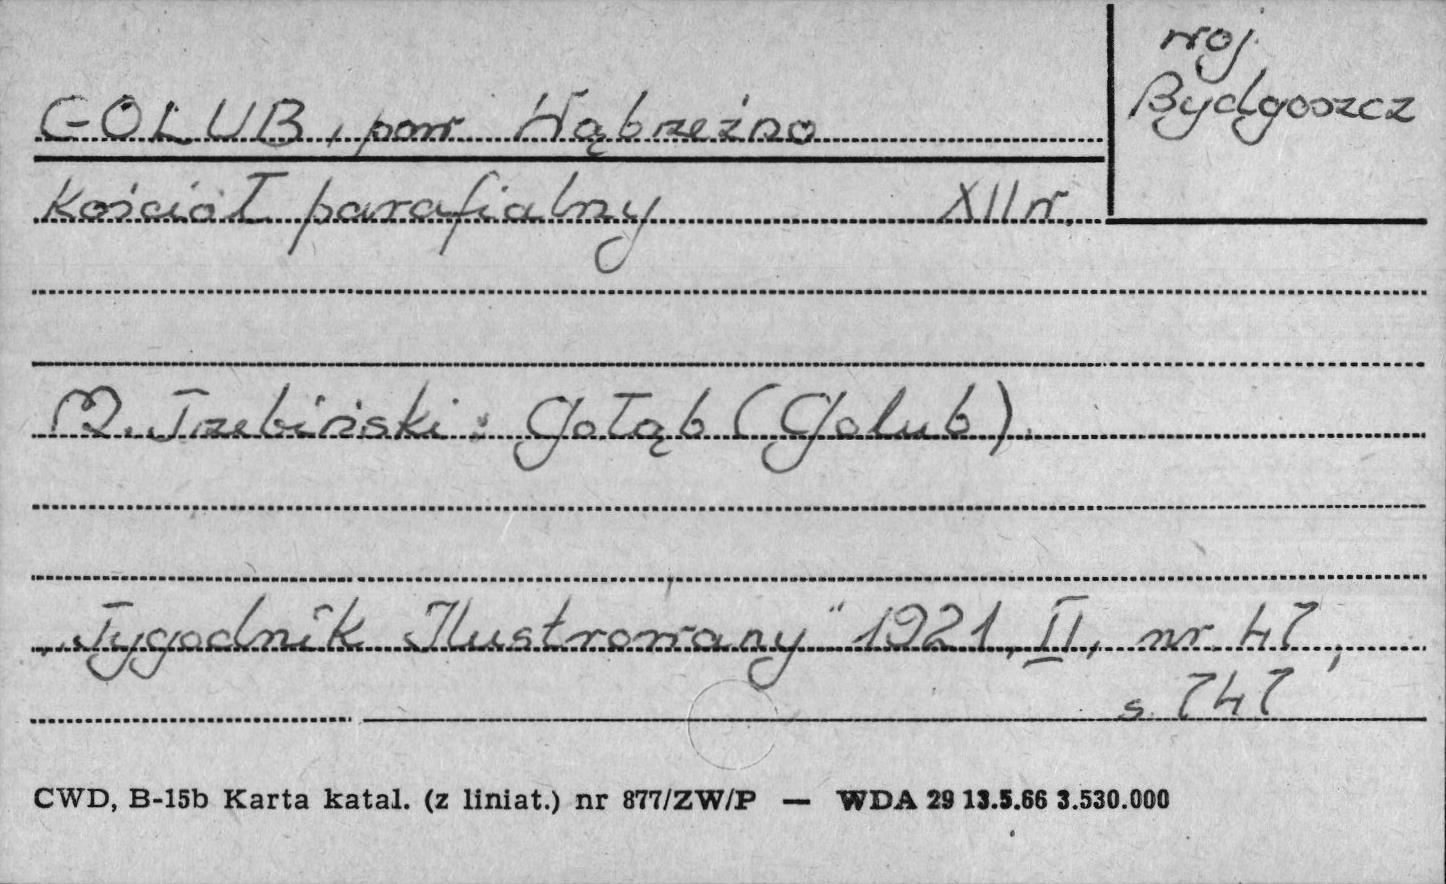 woj.
Bydgoszcz
GOLUB, pow. Wąbrzeźno
Kościół parafialny XII w.
M. Trzebiński: Gołąb (Golub).
"Tygodnik Ilustrowany" 1921, II, nr. 47,
s. 747
CWD, B-15b Karta katal. (z liniat.) nr 877/ZW/P — WDA 29 13.5.66 3.530.000